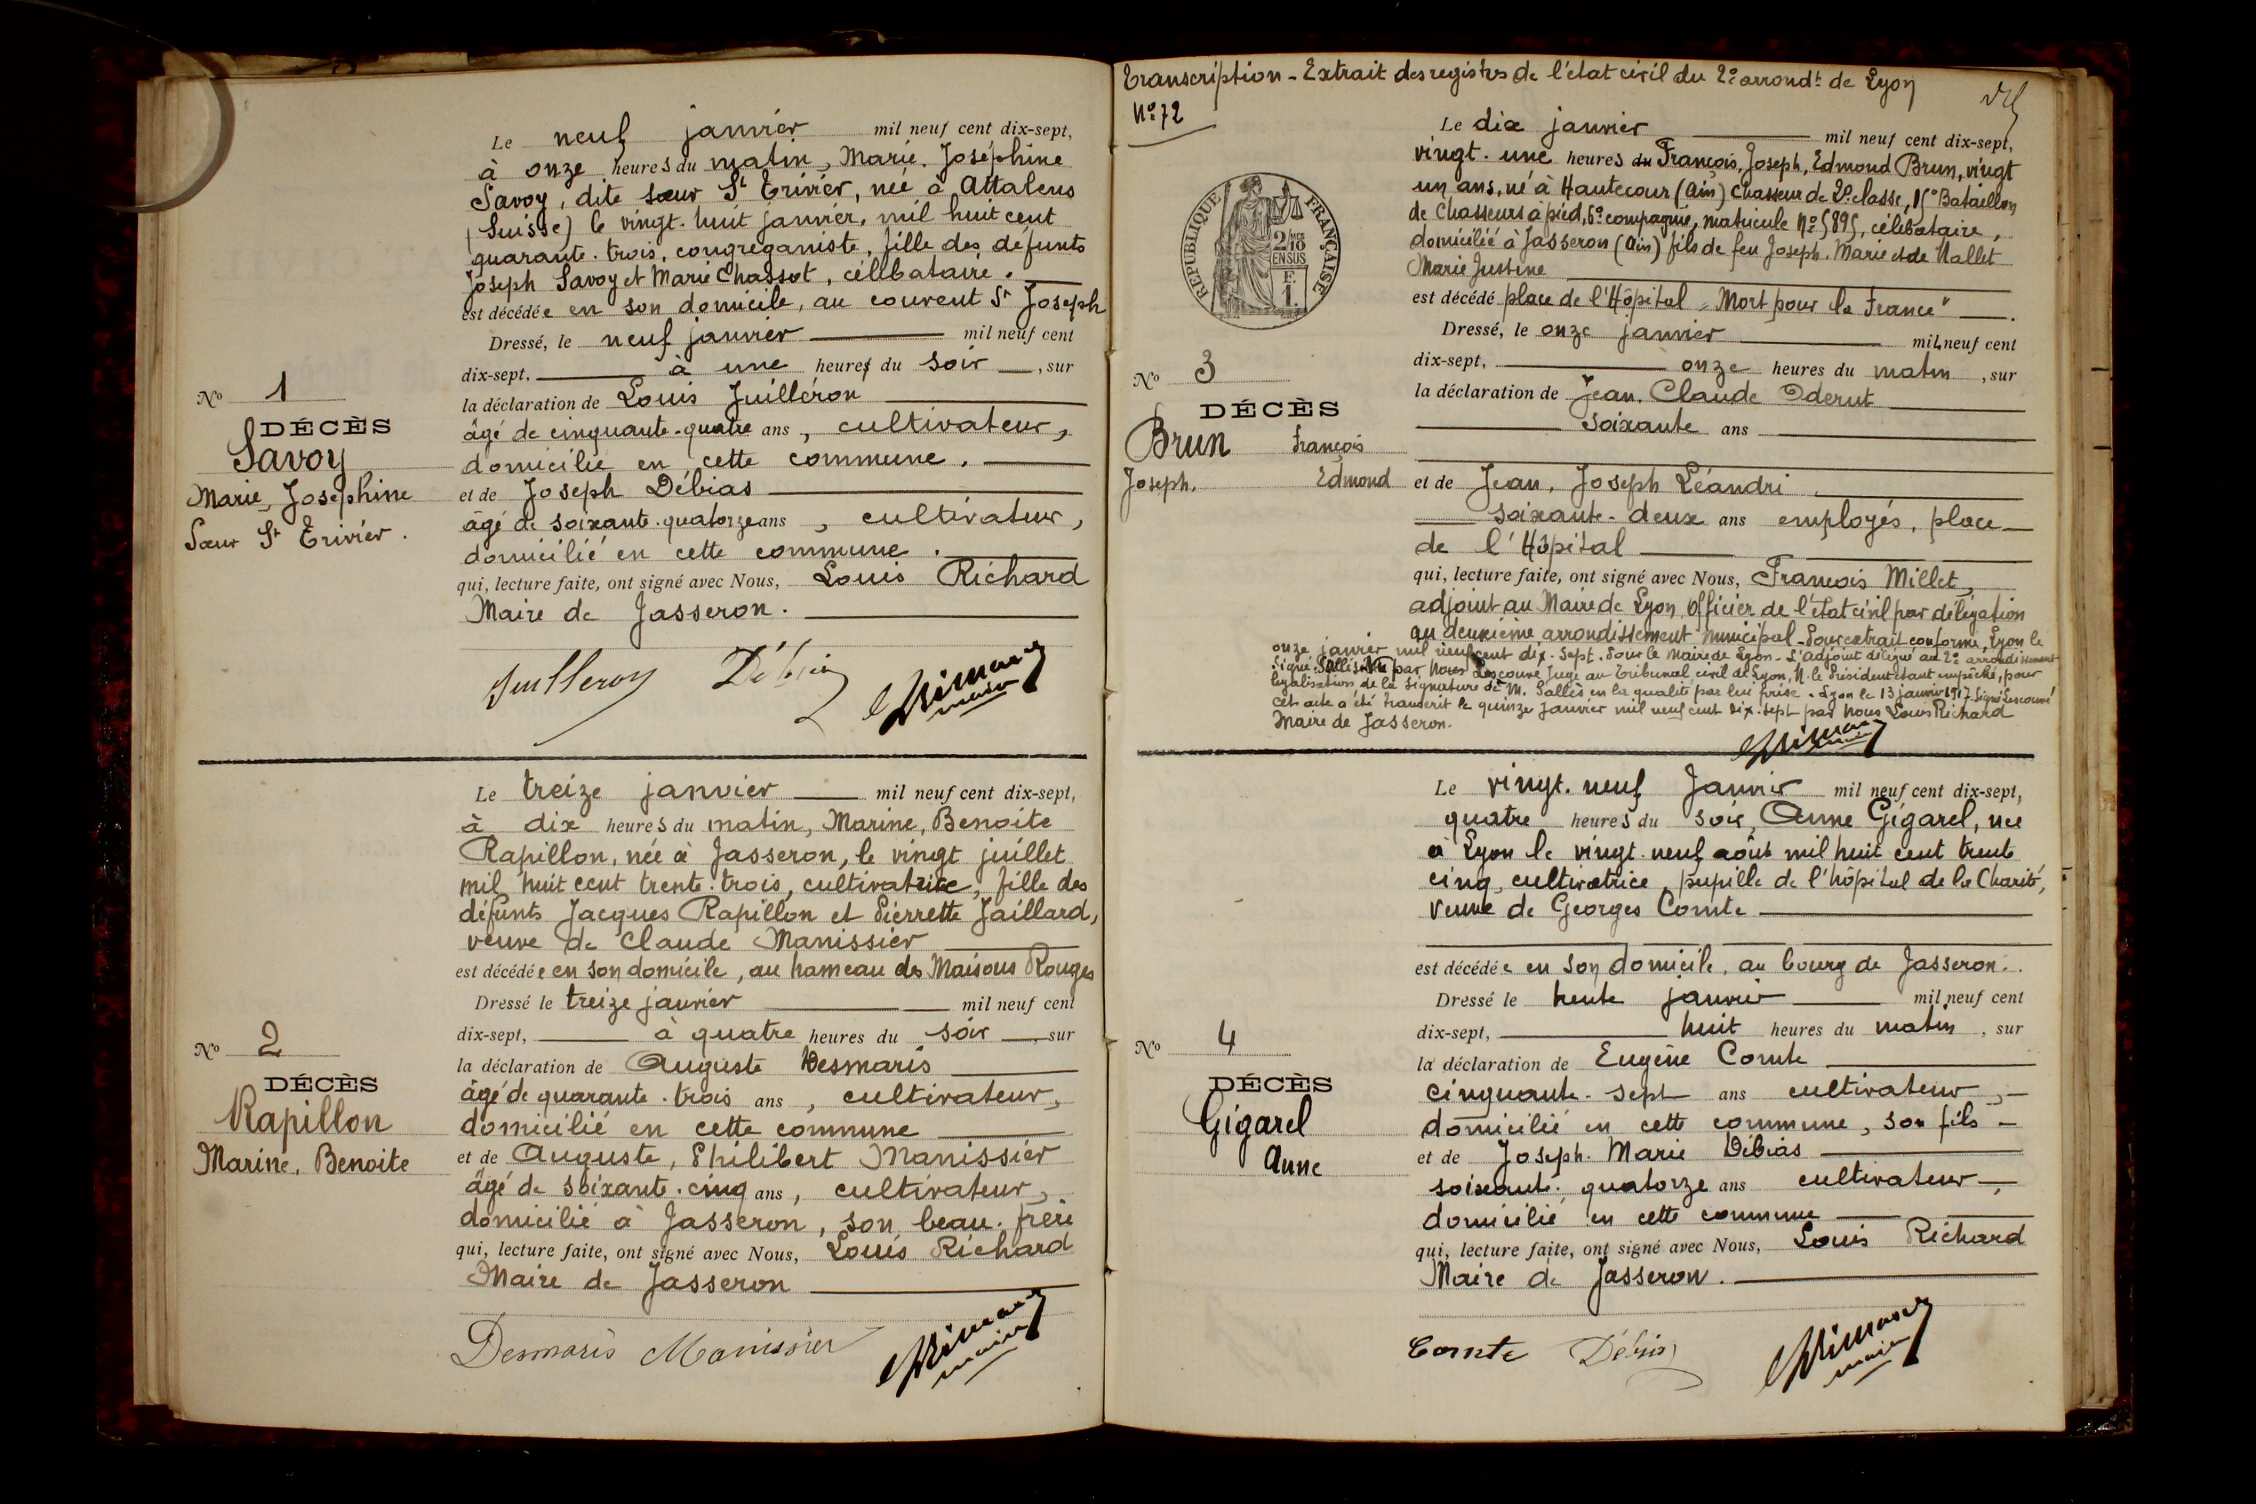 Le neuf janvier mil neuf cent dix-sept,
à onze heures du matin, Marie, Joséphine
Savoy, dite sœur St Trivier, née à Attalens
(Suisse) le vingt-huit janvier, mil huit cent
quarante-trois, congréganiste, fille des défunts
Joseph Savoy et Marie Chassot, célibataire.
est décédée en son domicile, au couvent St Joseph
Dressé, le neuf janvier mil neuf cent
dix-sept, à une heures du soir, sur
la déclaration de Louis Juilléron
âgé de cinquante-quatre ans, cultivateur,
domicilié en cette commune.
et de Joseph Débias
âgé de soixante-quatorze ans, cultivateur,
domicilié en cette commune.
qui, lecture faite, ont signé avec Nous, Louis Richard
Maire de Jasseron.
Juilleron Débias
maire
No 1
DÉCÈS
Savoy
Marie, Joséphine
Sœur St Trivier.
Le treize janvier mil neuf cent dix-sept,
à dix heures du matin, Marine, Benoite
Rapillon, née à Jasseron, le vingt juillet
mil huit cent trente-trois, cultivatrice, fille des
défunts Jacques Rapillon et Pierrette Jaillard,
veuve de Claude Manissier
est décédée en son domicile, au hameau des Maisons Rouges
Dressé le treize janvier mil neuf cent
dix-sept, à quatre heures du soir, sur
la déclaration de Auguste Desmaris
âgé de quarante-trois ans, cultivateur,
domicilié en cette commune
et de Auguste, Philibert Manissier
âgé de soixante-cinq ans, cultivateur,
domicilié à Jasseron, son beau-frère
qui, lecture faite, ont signé avec Nous, Louis Richard
Maire de Jasseron
Desmaris Manissier
maire
No 2
DÉCÈS
Rapillon
Marine, Benoite
Transcription - Extrait des registres de l'état civil du 2e arrondt de Lyon
No 72
RÉPUBLIQUE FRANÇAISE
2/10
EN SUS
F.
1.
Le dix janvier mil neuf cent dix-sept,
vingt-une heures du François, Joseph, Edmond Brun, vingt
un ans, né à Hautecour (Ain) Chasseur de 2e classe, 15e Bataillon
de Chasseurs à pied, 6e compagnie, matricule No 5895, célibataire,
domicilié à Jasseron (Ain) fils de feu Joseph, Marie et de Nallet
Marie Justine
est décédé place de l'Hôpital "Mort pour la France"
Dressé, le onze janvier mil neuf cent
dix-sept, onze heures du matin, sur
la déclaration de Jean, Claude Oderut
soixante ans
et de Jean, Joseph Léandri
soixante-deux ans employés, place
de l'Hôpital
qui, lecture faite, ont signé avec Nous, François Millet,
adjoint au Maire de Lyon, officier de l'état civil par délégation
au deuxième arrondissement municipal - Pour extrait conforme, Lyon le
onze janvier mil neuf cent dix-sept. Pour le Maire de Lyon - L'adjoint délégué au 2e arrondissement
Signé: Sallès. Vu par Nous Lescouvé Juge au Tribunal civil de Lyon, M. le Président étant empêché, pour
légalisation de la signature de M. Sallès en la qualité par lui prise. Lyon le 13 janvier 1917 Signé Lescouvé
Cet acte a été transcrit le quinze janvier mil neuf cent dix-sept par Nous Louis Richard
Maire de Jasseron.
No 3
DÉCÈS
Brun François
Joseph, Edmond
Le vingt-neuf Janvier mil neuf cent dix-sept,
quatre heures du soir, Anne Gigarel, née
à Lyon le vingt-neuf août mil huit cent trente
cinq, cultivatrice, pupille de l'hôpital de la Charité,
veuve de Georges Comte
est décédée en son domicile, au bourg de Jasseron.
Dressé le trente janvier mil neuf cent
dix-sept, huit heures du matin, sur
la déclaration de Eugène Comte
cinquante-sept ans cultivateur,
domicilié en cette commune, son fils
et de Joseph Marie Débias
soixante-quatorze ans cultivateur,
domicilié en cette commune
qui, lecture faite, ont signé avec Nous, Louis Richard
Maire de Jasseron.
Comte Débias
maire
No 4
DÉCÈS
Gigarel
Anne